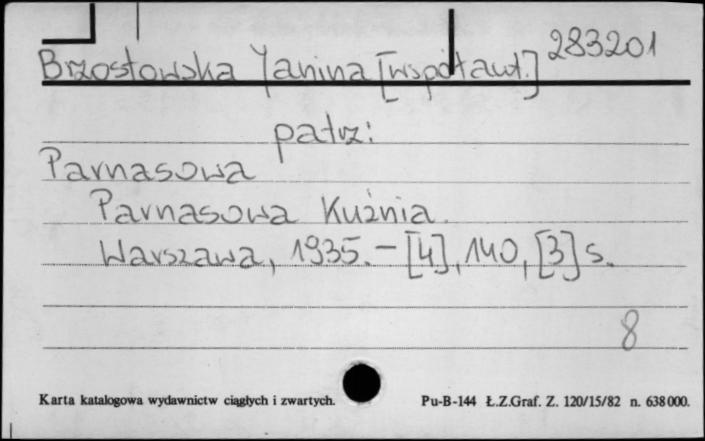 Brzostowska Janina [współaut.] 283201
patrz:
Parnasowa
Parnasowa Kuźnia.
Warszawa, 1935. – [4], 140, [3] s.
8
Karta katalogowa wydawnictw ciągłych i zwartych. Pu-B-144 Ł.Z.Graf. Z. 120/15/82 n. 638000.